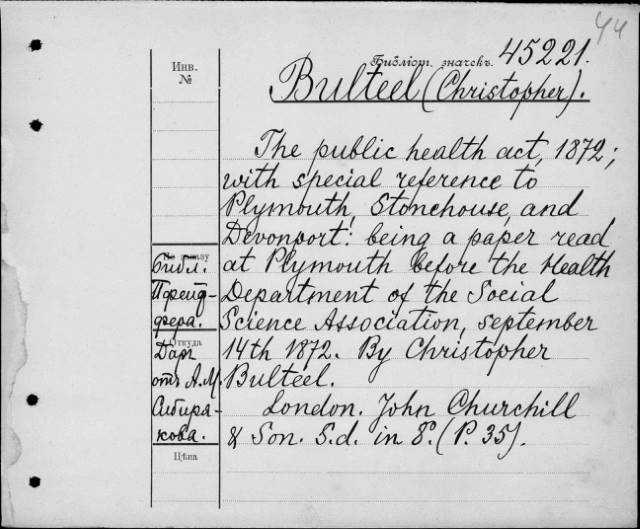 44
Библіот. значекъ 45221.
Инв.
№
Bulteel (Christopher).
The public health act, 1872;
with special reference to
Plymouth, Stonehouse, and
Devonport: being a paper read
at Plymouth before the Health
Department of the Social
Science Association, september
14th 1872. By Christopher
Bulteel.
London. John Churchill
& Son. S.d. in 8°. (P. 35).
Библ.
Пфейф-
фера.
Откуда
Даръ
отъ А.М.
Сибиря-
кова.
Цѣна